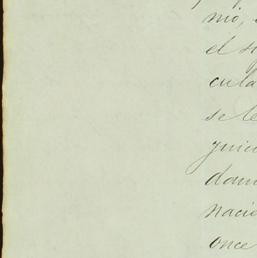 mo,
el s
cula
se le
guien
dam
nacio
once